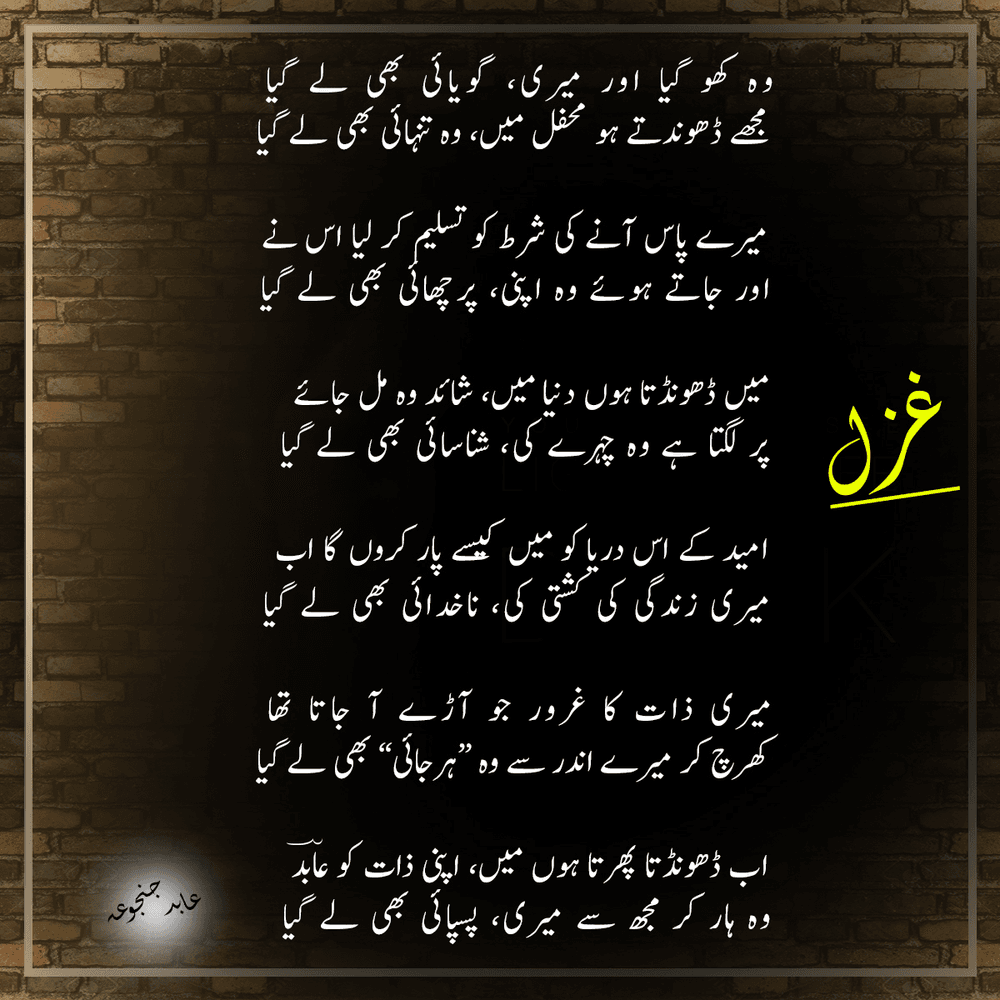 وہ کھو گیا اور میری، گویائی بھی لے گیا
مجھے ڈھوندتے ہو محفل میں، وہ تنہائی بھی لے گیا
میرے پاس آنے کی شرط کو تسلیم کر لیا اس نے
اور جاتے ہوئے وہ اپنی، پرچھائی بھی لے گیا
غزل
میں ڈھونڈتا ہوں دنیا میں، شائد وہ مل جائے
پر لگتا ہے وہ چہرے کی، شناسائی بھی لے گیا
امید کے اس دریا کو میں کیسے پار کروں گا اب
میری زندگی کی کشتی کی، ناخدائی بھی لے گیا
میری ذات کا غرور جو آڑے آ جاتا تھا
کھرچ کر میرے اندر سے وہ ”ہرجائی“ بھی لے گیا
اب ڈھونڈتا پھرتا ہوں میں، اپنی ذات کو عابدؔ
وہ ہار کر مجھ سے میری، پسپائی بھی لے گیا
عابد جنجوعہ